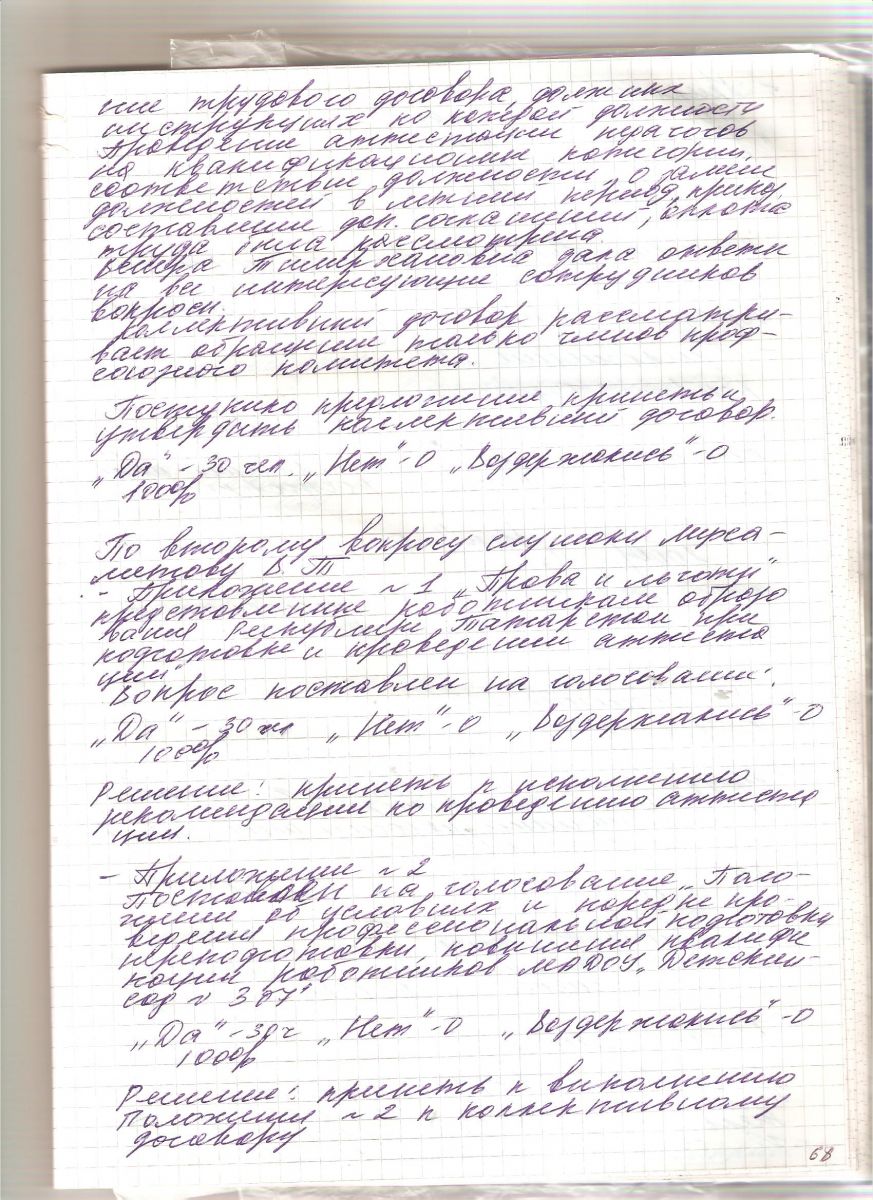 ние трудового договора, должных
инструкциях по каждой должности
Проведение аттестации педагогов
на квалификационные категории,
соответствие должности, о замене
должностей в летний период,
составлении доп. соглашений, оплата
труда была рассмотрена
Венера Тимерхановна дала ответы
на все интересующие сотрудников
вопросы.
Коллективный договор рассматри-
вает обращения только членов проф-
союзного комитета.
Поступило предложение принять и
утвердить коллективный договор.
„Да" – 30 чел. „Нет" – 0 „Воздержались" – 0
100%
По второму вопросу слушали Мирса-
метову В Т
- Приложение № 1 „Права и льготы"
представление работникам образо
вания Республики Татарстан при
подготовке и проведении аттеста
ции"
Вопрос поставлен на голосование.
„Да" – 30 чл „Нет" – 0 „Воздержались" – 0
100%
Решение: принять к исполнению
рекомендации по проведению аттеста
ции.
- Приложение № 2
на голосование „Поло-
жение об условиях и порядке про-
ведения профессиональной подготовки
переподготовки, повышения квалифи
кации работников МАДОУ „Детский
сад № 387"
„Да" – 30 ч „Нет" – 0 „Воздержались" – 0
100%
Решение: принять к выполнению
Положения № 2 к коллективному
договору
68